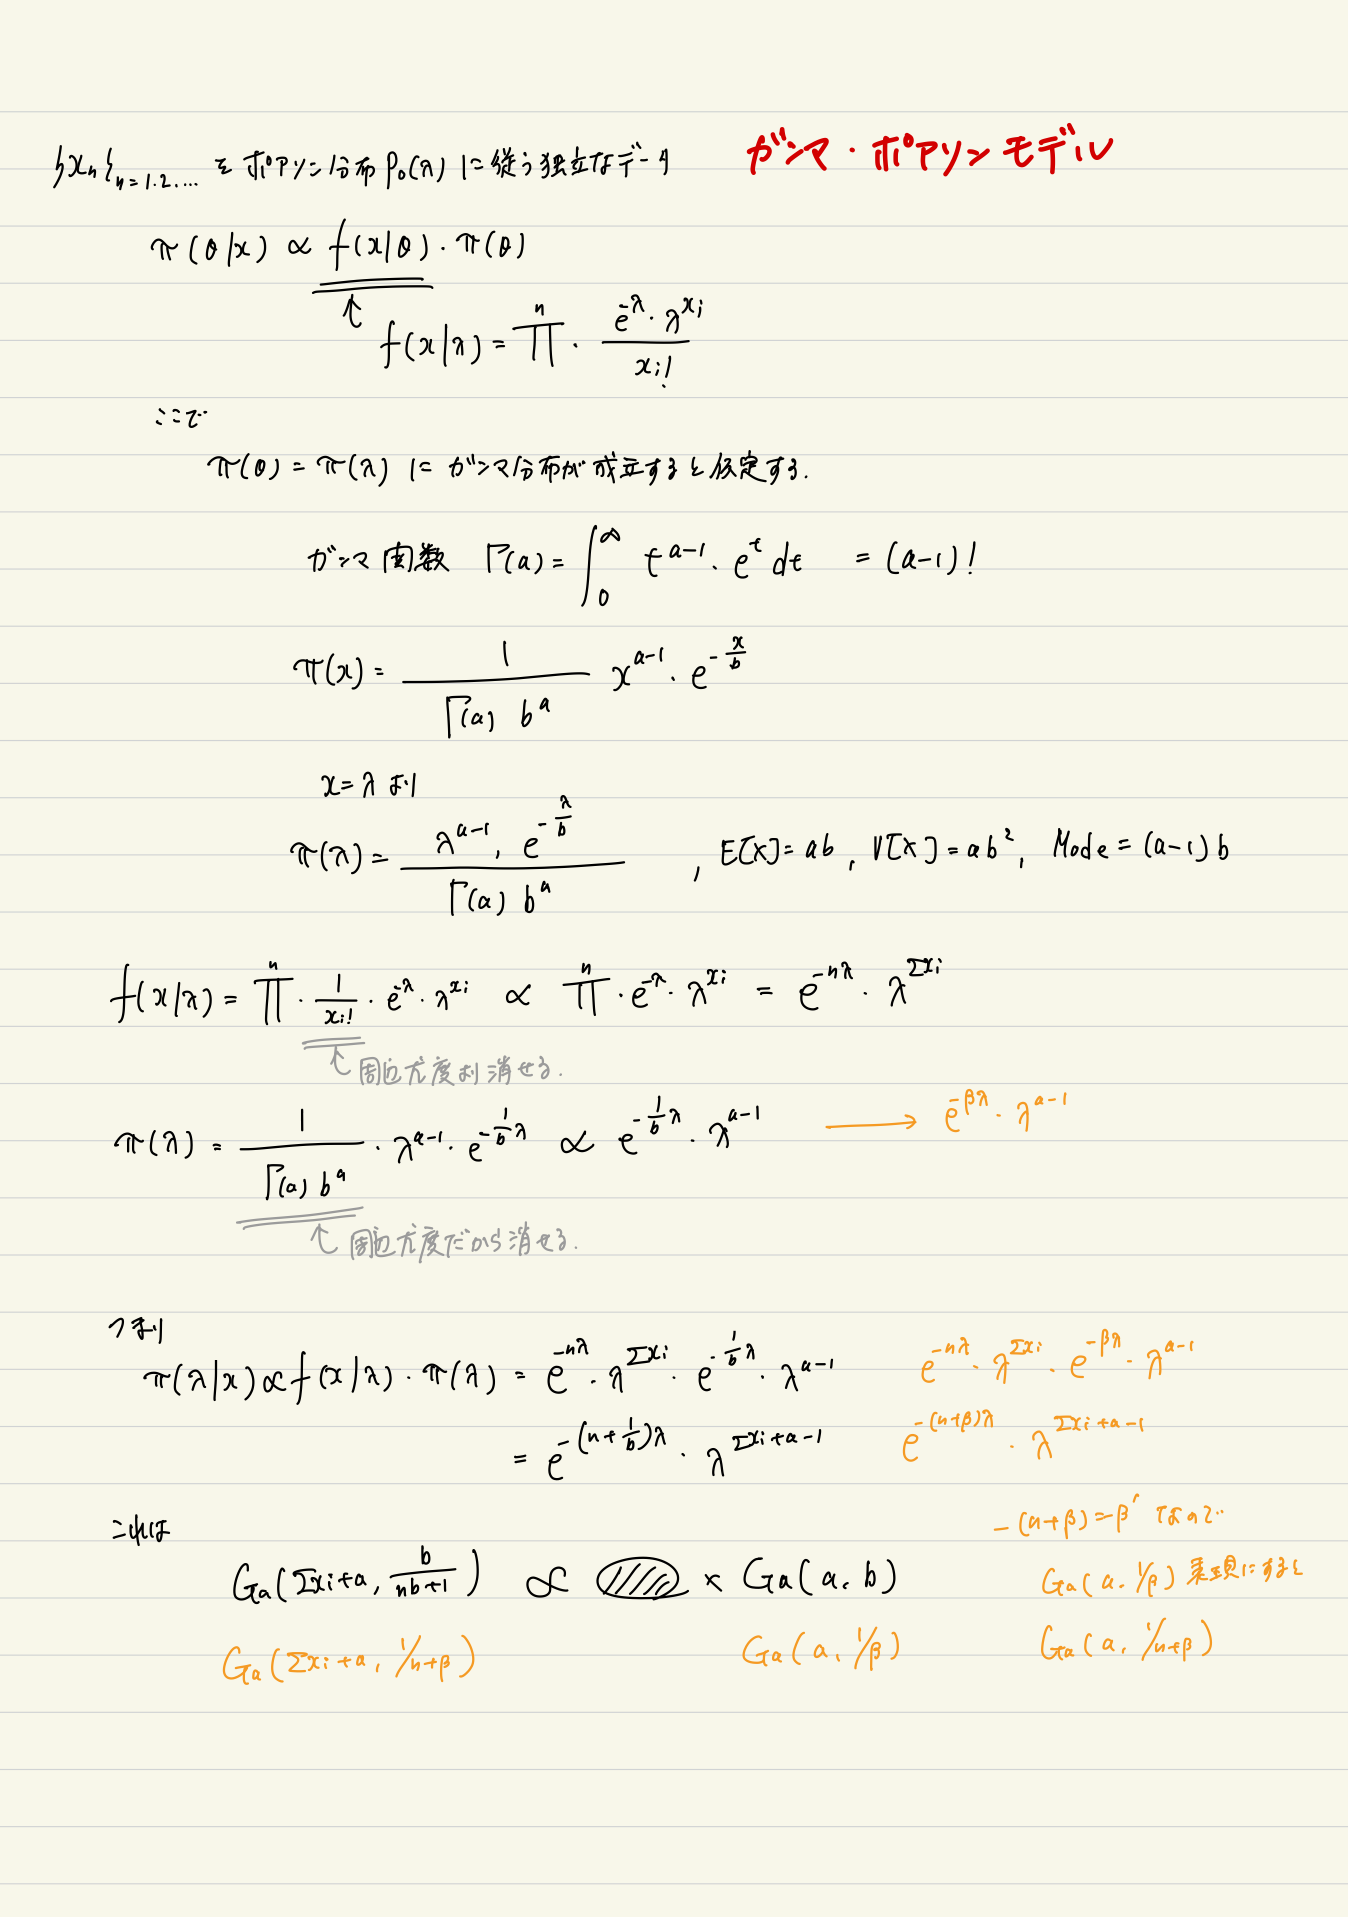 ガンマ・ポアソンモデル
{xn}n=1.2.... を ポアソン分布 Po(λ) に従う独立なデータ
π(θ|x) ∝ f(x|θ)・π(θ)
↑ f(x|λ) = Π^n ・ (e^-λ・λ^xi) / xi!
ここで
π(θ) = π(λ) に ガンマ分布が成立すると仮定する.
ガンマ関数 Γ(a) = ∫_0^∞ t^a-1・e^t dt = (a-1)!
π(x) = 1 / (Γ(a) b^a) x^a-1・e^-x/b
x=λ より
π(λ) = (λ^a-1・e^-λ/b) / (Γ(a) b^a) , E[X]=ab, V[X]=ab², Mode=(a-1)b
f(x|λ) = Π^n・1/xi!・e^-λ・λ^xi ∝ Π^n・e^-λ・λ^xi = e^-nλ・λ^Σxi
↑ 周辺尤度より消せる.
π(λ) = 1 / (Γ(a) b^a)・λ^a-1・e^-(1/b)λ ∝ e^-(1/b)λ・λ^a-1 → e^-βλ・λ^a-1
↑ 周辺尤度だから消せる.
つまり
π(λ|x) ∝ f(x|λ)・π(λ) = e^-nλ・λ^Σxi・e^-(1/b)λ・λ^a-1 e^-nλ・λ^Σxi・e^-βλ・λ^a-1
= e^-(n+1/b)λ・λ^Σxi+a-1 e^-(n+β)λ・λ^Σxi+a-1
これは
-(n+β)=-β' なので
Ga(Σxi+a, b/(nb+1)) ∝ × Ga(a, b)
Ga(a, 1/β) にすると
Ga(Σxi+a, 1/n+β) Ga(a, 1/β) Ga(a, 1/n+β)